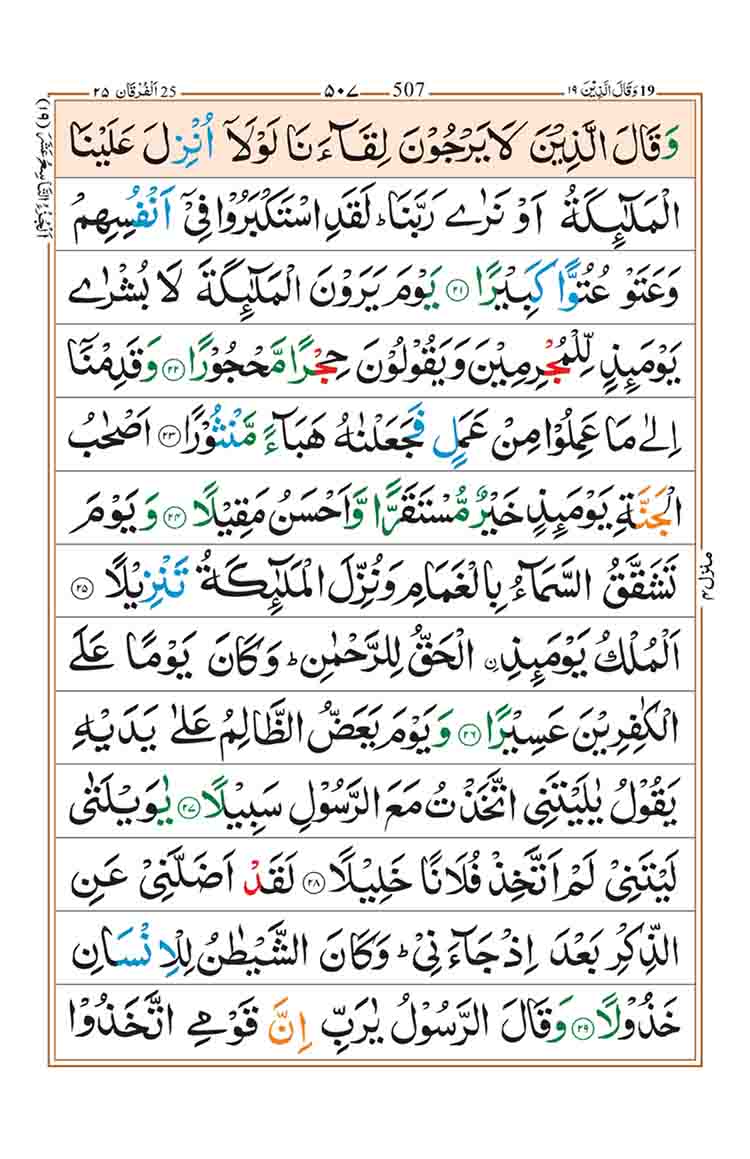 19 وَقَالَ الَّذِيْنَ ١٩ 507 ٥٠٧ 25 اَلْفُرْقَان ٢٥
وَقَالَ الَّذِيْنَ لَا يَرْجُوْنَ لِقَآءَنَا لَوْلَاۤ اُنْزِلَ عَلَيْنَا
الْمَلٰٓئِكَةُ اَوْ نَرٰى رَبَّنَا ؕ لَقَدِ اسْتَكْبَرُوْا فِيْۤ اَنْفُسِهِمْ
وَعَتَوْ عُتُوًّا كَبِيْرًا ﴿٢١﴾ يَوْمَ يَرَوْنَ الْمَلٰٓئِكَةَ لَا بُشْرٰى
يَوْمَئِذٍ لِّلْمُجْرِمِيْنَ وَيَقُوْلُوْنَ حِجْرًا مَّحْجُوْرًا ﴿٢٢﴾ وَقَدِمْنَاۤ
اِلٰى مَا عَمِلُوْا مِنْ عَمَلٍ فَجَعَلْنٰهُ هَبَآءً مَّنْثُوْرًا ﴿٢٣﴾ اَصْحٰبُ
الْجَنَّةِ يَوْمَئِذٍ خَيْرٌ مُّسْتَقَرًّا وَّاَحْسَنُ مَقِيْلًا ﴿٢٤﴾ وَيَوْمَ
تَشَقَّقُ السَّمَآءُ بِالْغَمَامِ وَنُزِّلَ الْمَلٰٓئِكَةُ تَنْزِيْلًا ﴿٢٥﴾
اَلْمُلْكُ يَوْمَئِذِ ۨ الْحَقُّ لِلرَّحْمٰنِ ؕ وَكَانَ يَوْمًا عَلَى
الْكٰفِرِيْنَ عَسِيْرًا ﴿٢٦﴾ وَيَوْمَ يَعَضُّ الظَّالِمُ عَلٰى يَدَيْهِ
يَقُوْلُ يٰلَيْتَنِى اتَّخَذْتُ مَعَ الرَّسُوْلِ سَبِيْلًا ﴿٢٧﴾ يٰوَيْلَتٰى
لَيْتَنِيْ لَمْ اَتَّخِذْ فُلَانًا خَلِيْلًا ﴿٢٨﴾ لَقَدْ اَضَلَّنِيْ عَنِ
الذِّكْرِ بَعْدَ اِذْ جَآءَنِيْ ؕ وَكَانَ الشَّيْطٰنُ لِلْاِنْسَانِ
خَذُوْلًا ﴿٢٩﴾ وَقَالَ الرَّسُوْلُ يٰرَبِّ اِنَّ قَوْمِى اتَّخَذُوْا
اَلْجُزْءُ التَّاسِعُ عَشَرَ (١٩)
منزل ٤